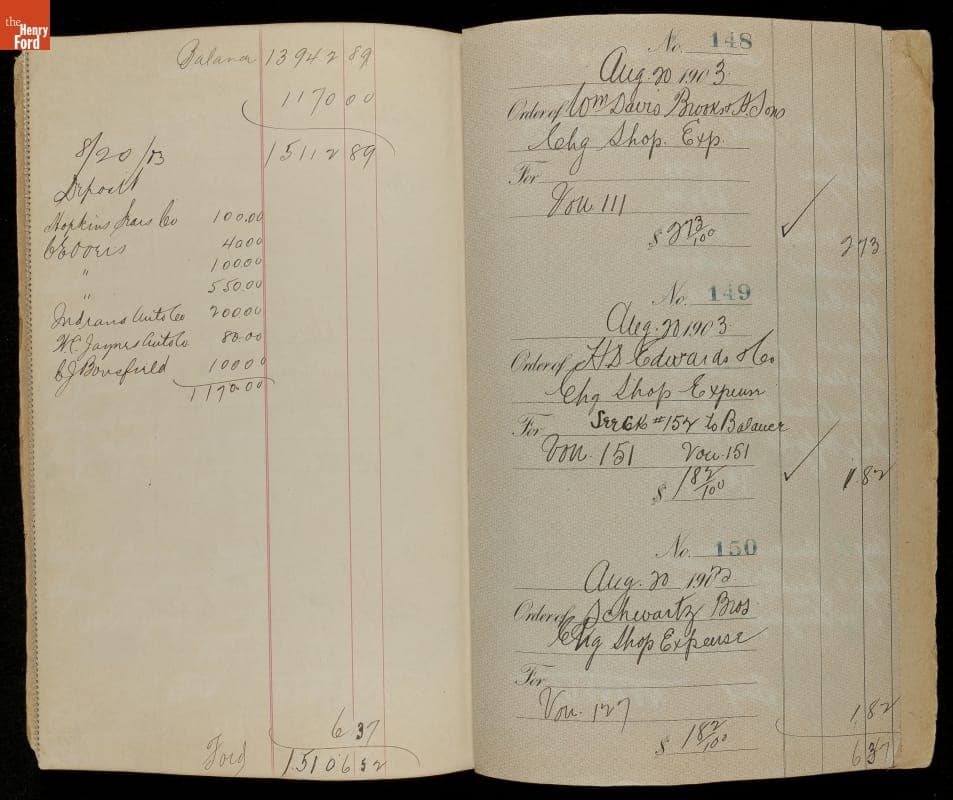 the
Henry
Ford
Balance 13942 89
1170 00
8/20/03 15112 89
Deposit
Hopkins Sears Co 100.00
C E Owens 40 00
" 100 00
" 550 00
Indiana Auto Co 200 00
H.C. Jaynes Auto Co 80.00
C J Bousfield 100 00
1170.00
6 37
Ford 15106 52
No. 148
Aug. 20 1903
Order of Wm Davis Brooks & Sons
Chg Shop. Exp.
For
Vou 111
$ 2 73/100
2 73
No. 149
Aug. 20 1903
Order of H D Edwards & Co
Chg Shop Expense
For See CK #152 to Balance
Vou. 151 Vou. 151
$ 1 82/100
1.82
No. 150
Aug. 20 1903
Order of Schwartz Bros
Chg Shop Expense
For
Vou. 127
$ 1 82/100
1.82
6 37